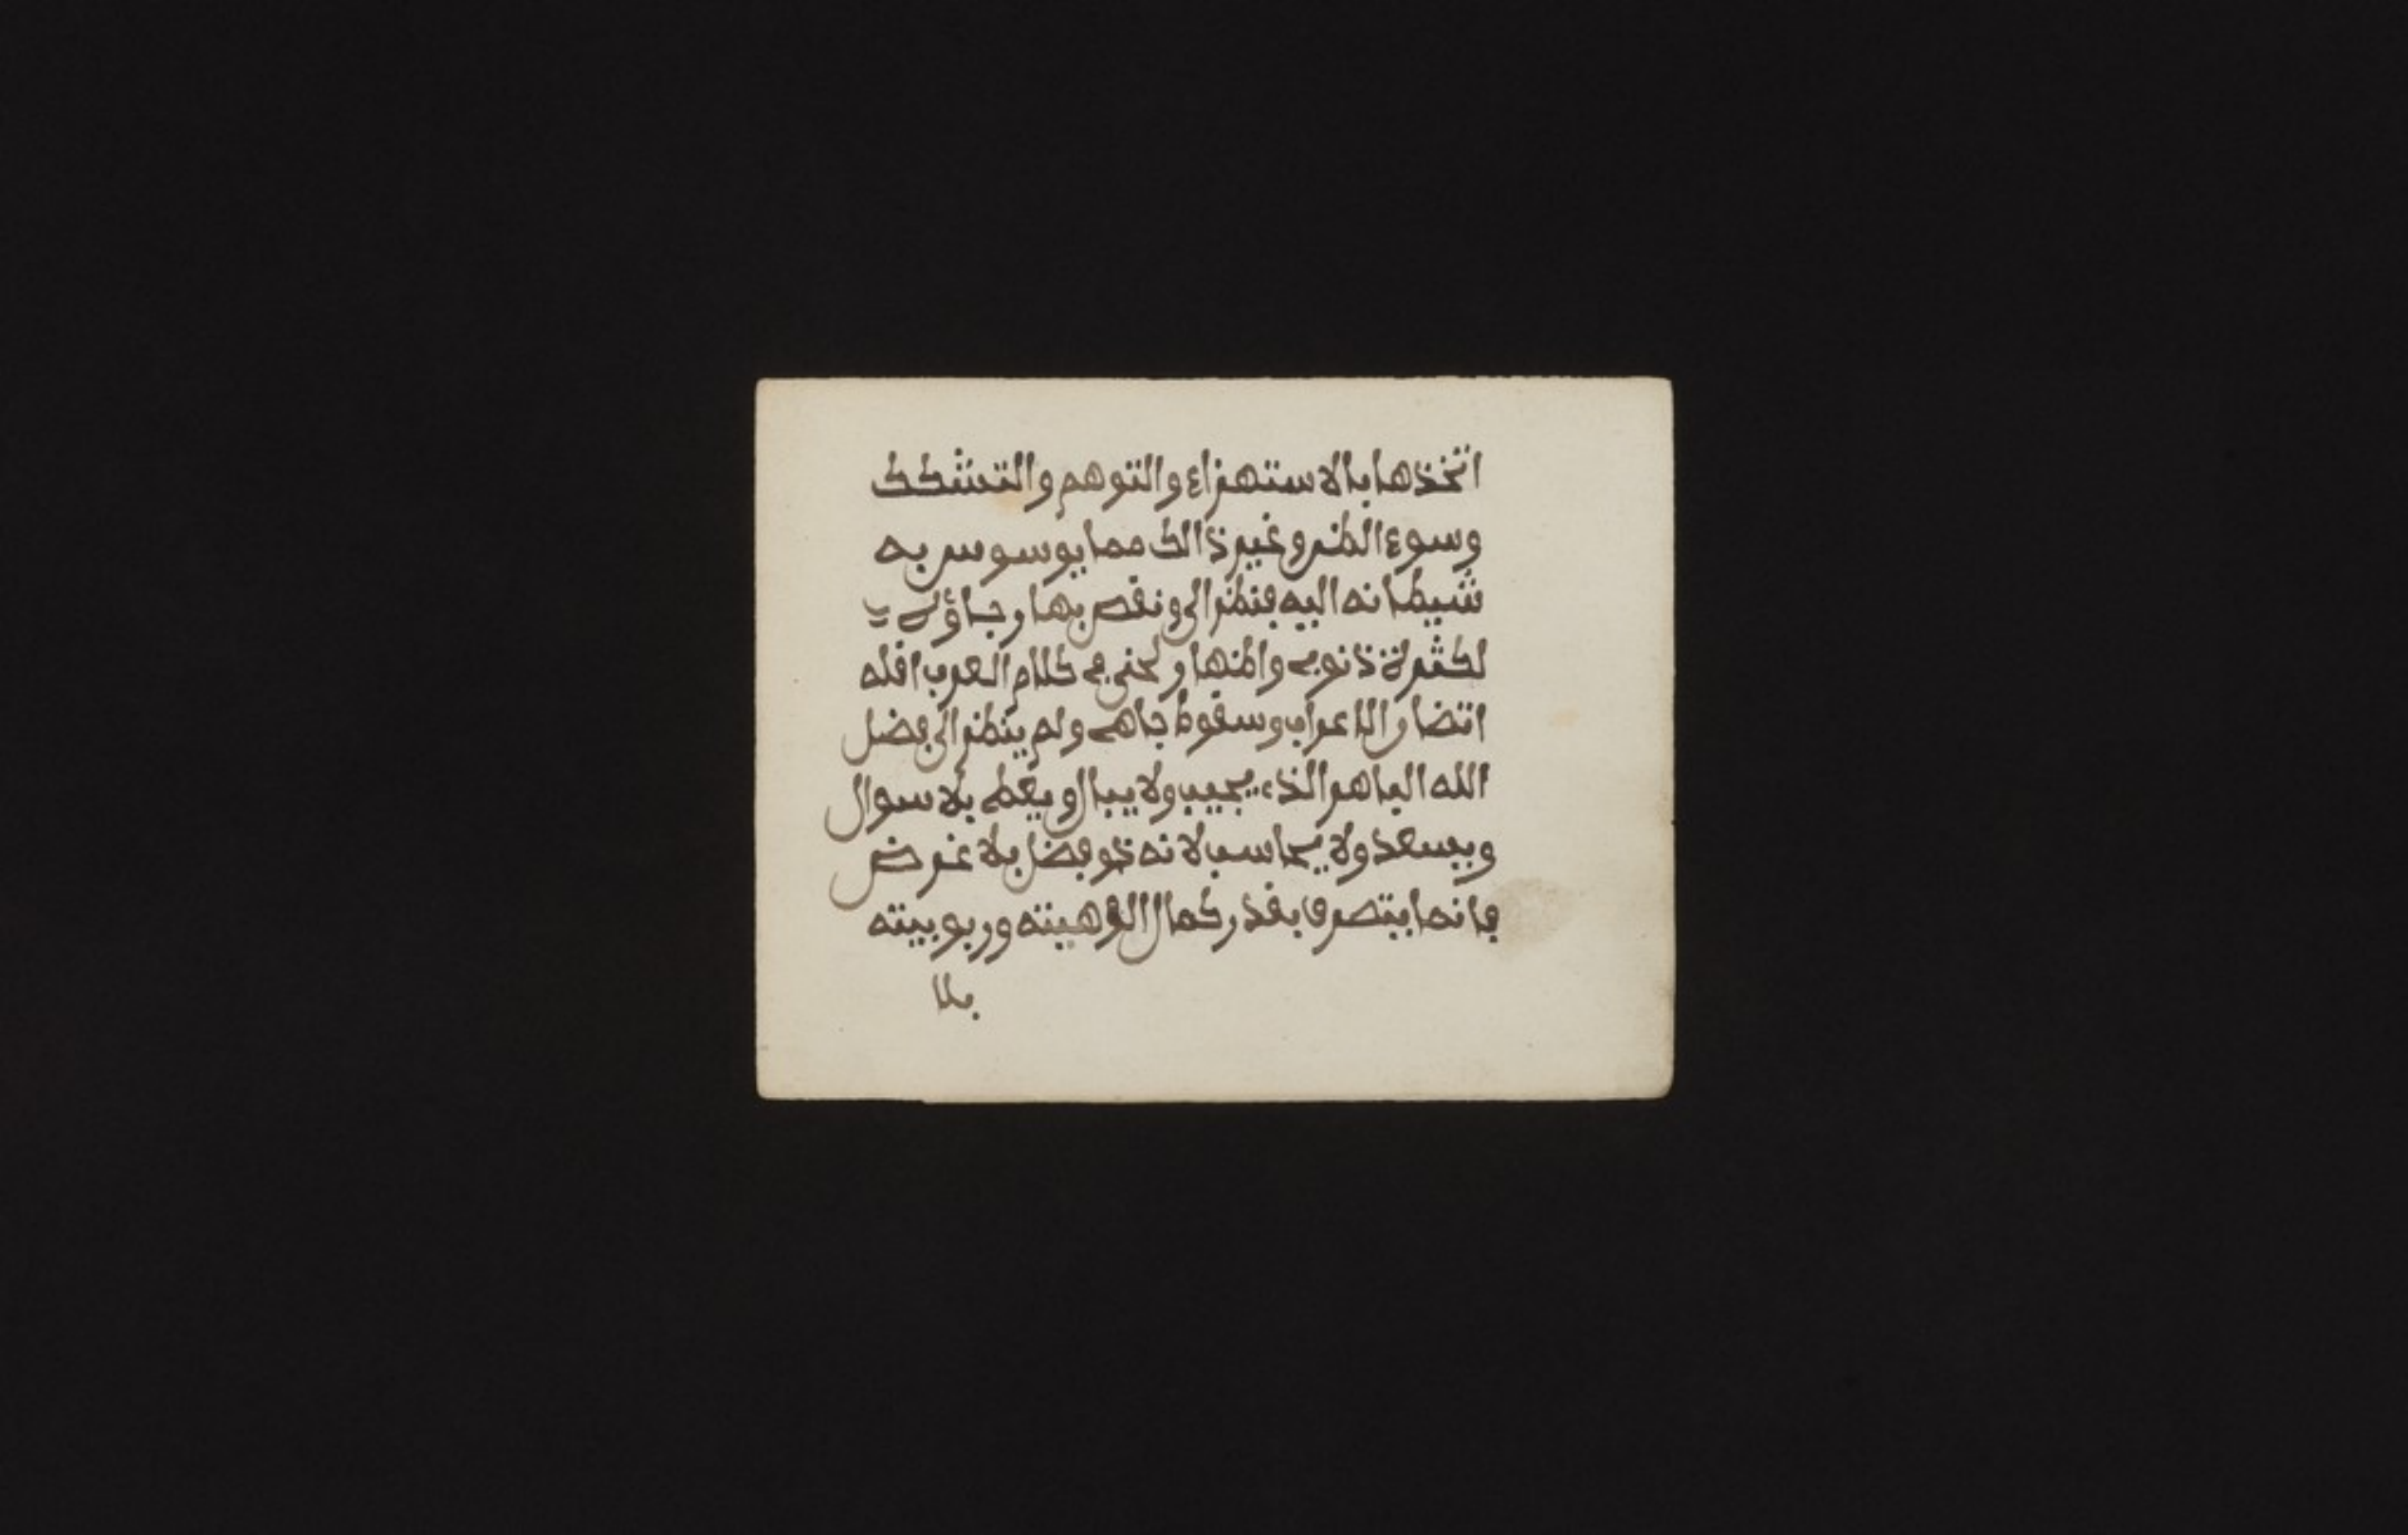 اتخذها بالاستهزاء والتوهم والتشكك
وسوء الظن وغير ذالك مما يوسوس به
شيطانه اليه فنظر الى ونقص بها رجاؤه
لكثرة ذنوبي واظهار لحني في كلام العرب اقله
الاعراب وسقوط جاهي ولم ينظر الى فضل
الله الباهر الذي يجيب ولا يبال ويعطي بلا سوال
ويسعد ولا يحاسب لانه ذو فضل بلا غرض
فانما يتصرف بقدر كمال الوهيته وربوبيته
بلا